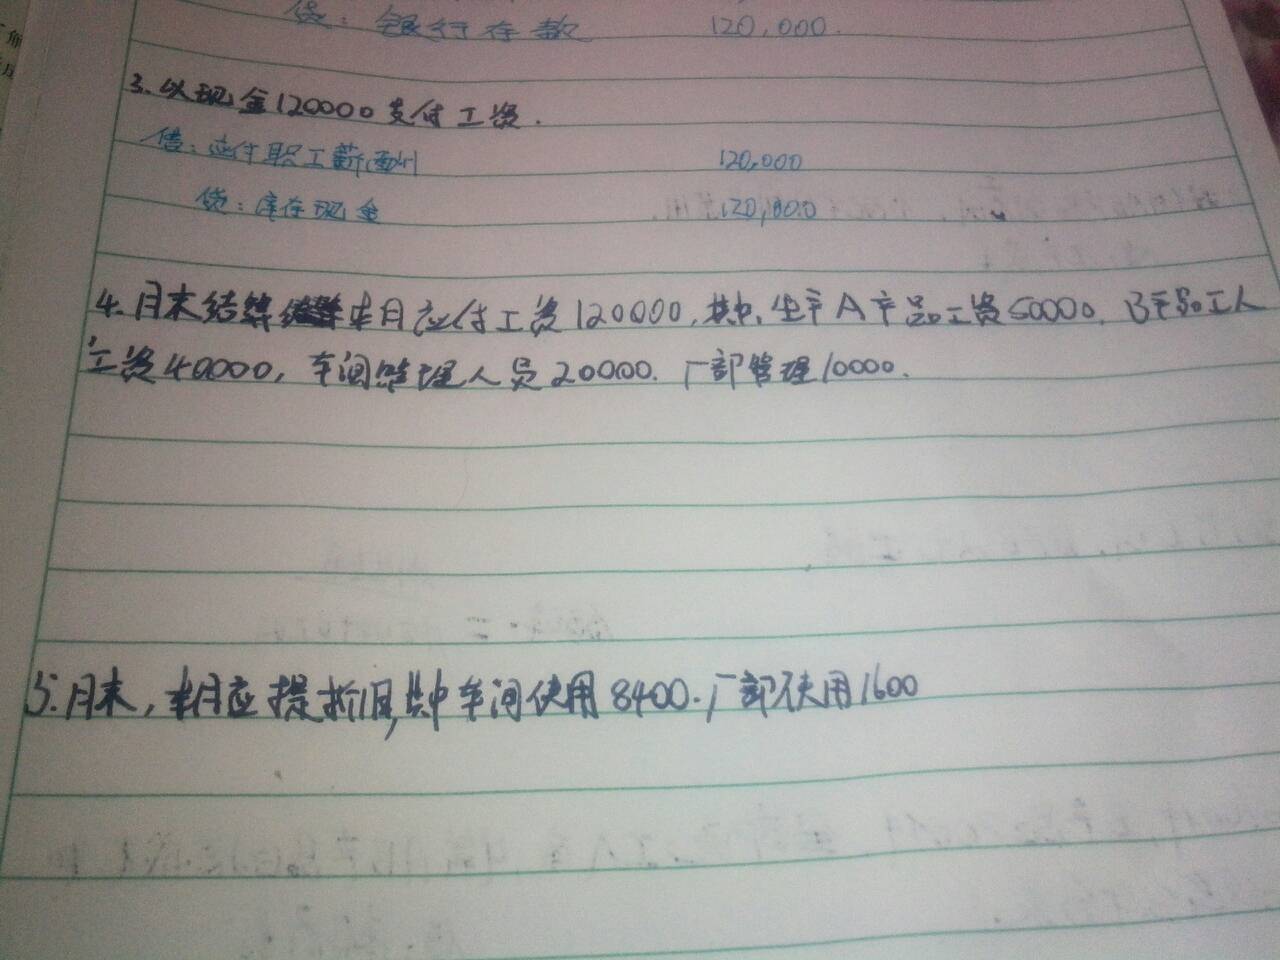 贷：银行存款 120,000.
3.以现金120000支付工资.
借：应付职工薪酬 120,000
贷：库存现金 120,000
4.月末结算本月应付工资120000,其中,生产A产品工资50000,B产品工人
工资40000,车间管理人员20000.厂部管理10000.
5.月末,本月应提折旧,其中车间使用8400.厂部使用1600